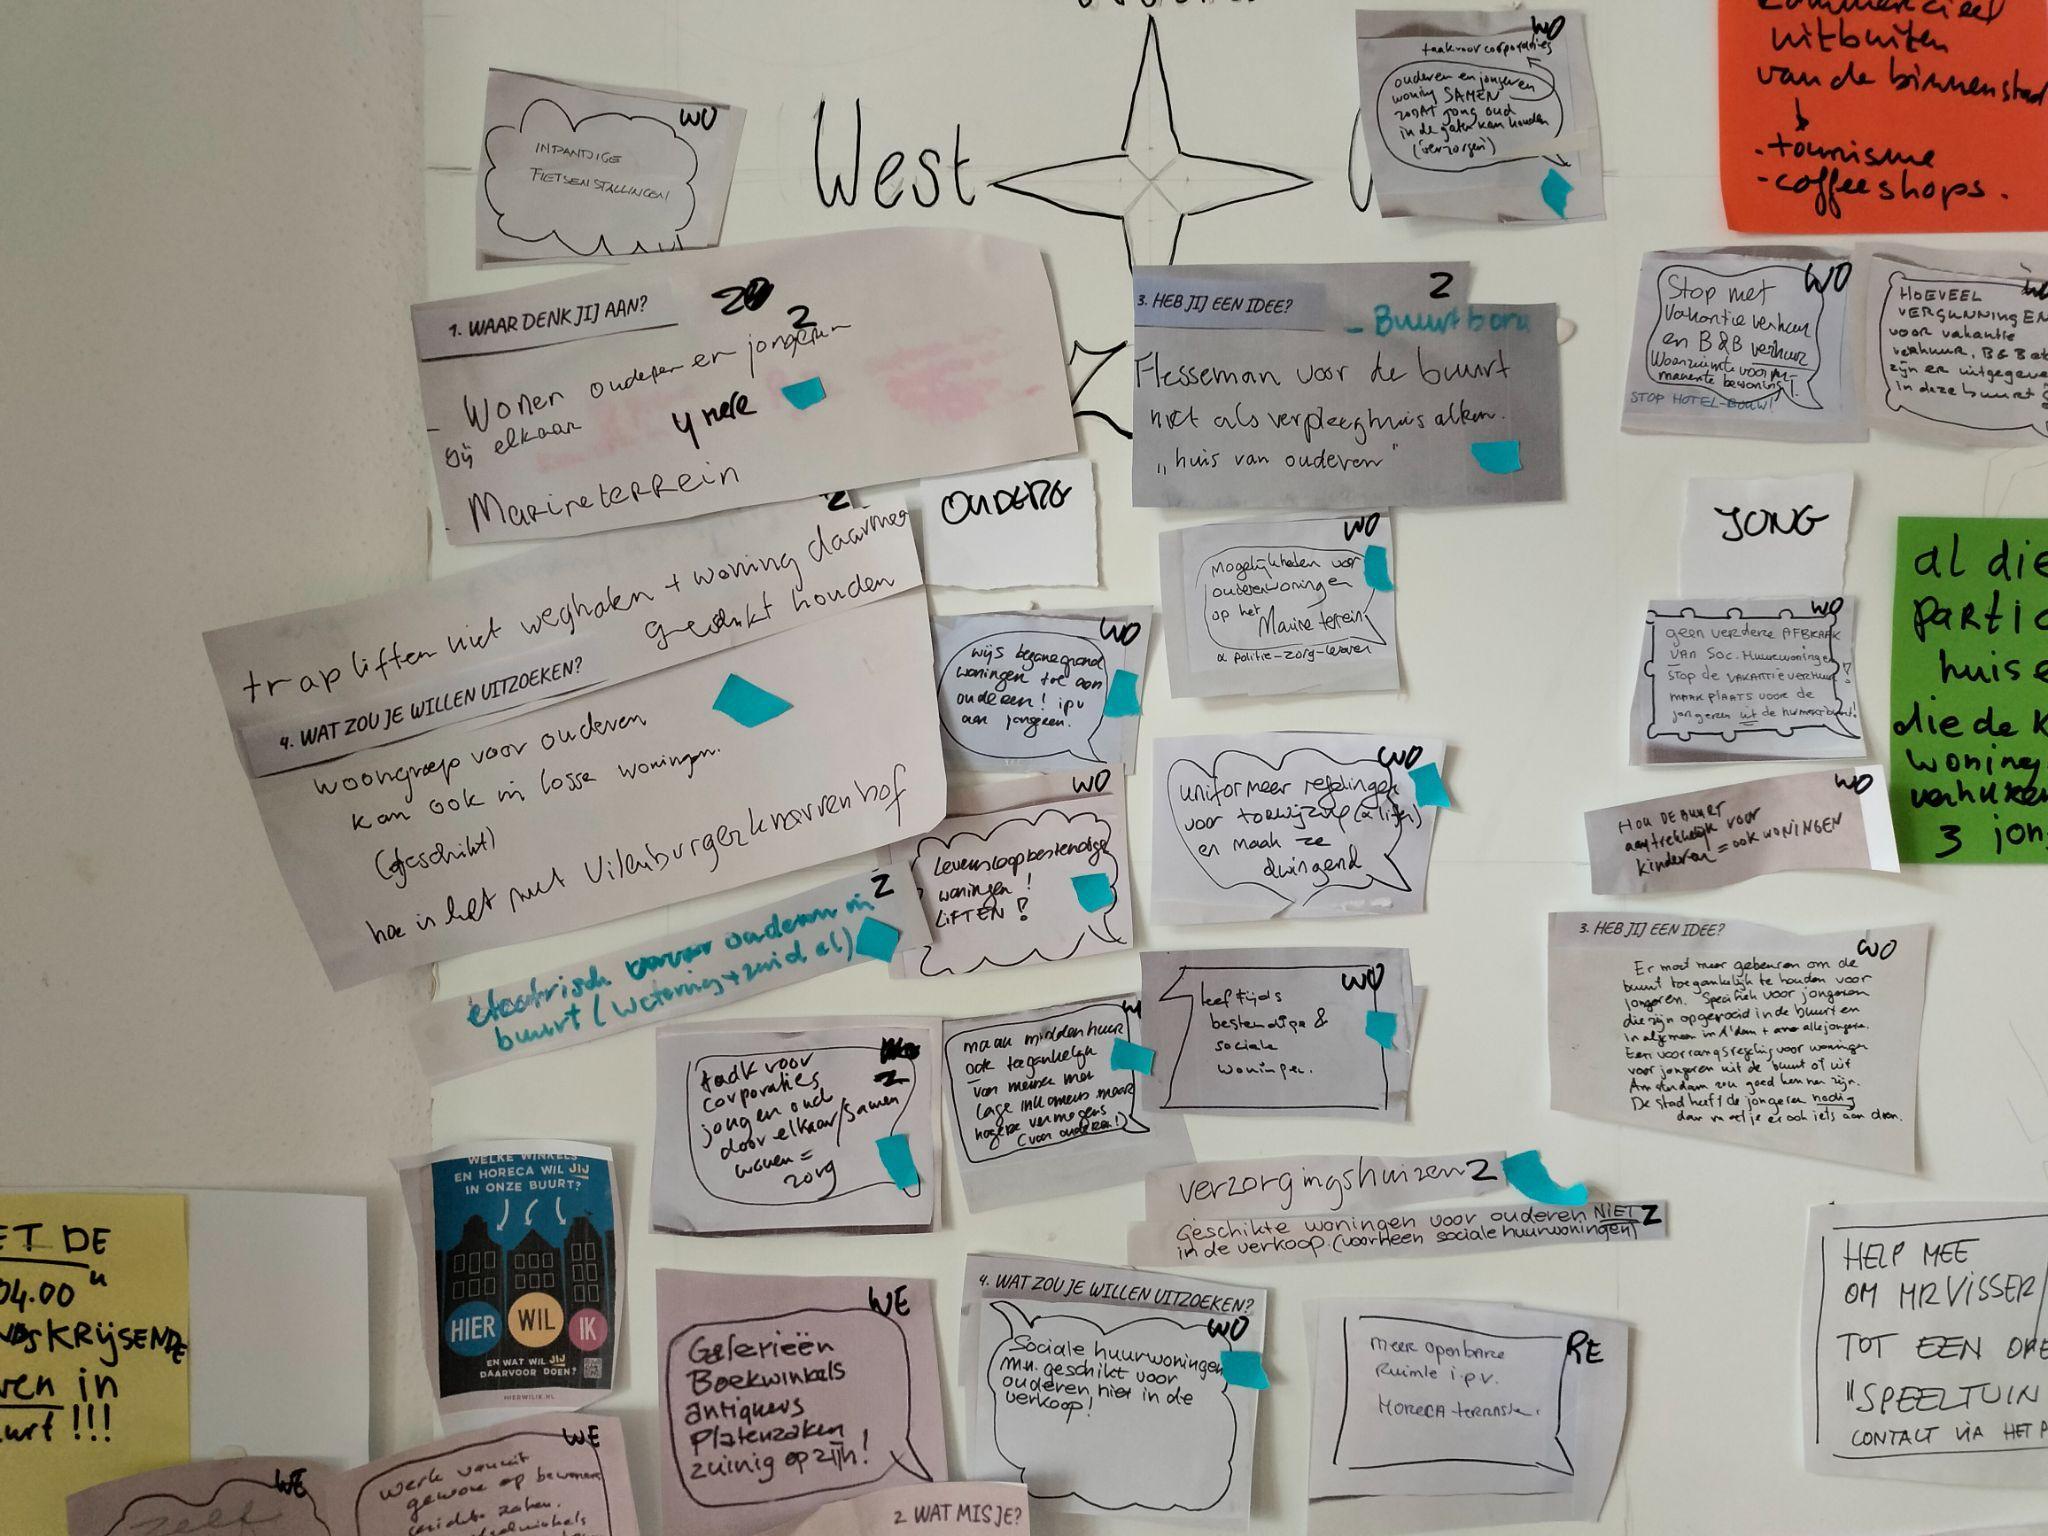 West
WO
INPANDIGE
FIETSENSTALLINGEN
WO
taak voor corporaties
ouderen en jongeren
woning SAMEN
zodat jong oud
in de gaten kan houden
(verzorgen)
commercieel
uitbuiten
van de binnenstad
- toerisme
- coffeeshops.
1. WAAR DENK JIJ AAN?
2
- Wonen ouderen en jongeren
bij elkaar
4 mere
- Marineterrein
3. HEB JIJ EEN IDEE?
2
- Buurtborg
Flesseman voor de buurt
niet als verpleeghuis alleen.
"huis van ouderen"
WO
Stop met
Vakantieverhuur
en B&B verhuur
Woonruimte voor per-
manente bewoning!
STOP HOTEL-BOUW!
HOEVEEL
VERGUNNINGEN
voor vakantie
verhuur, B&B
zijn er uitgegeven
in deze buurt
OUDERE
JONG
2
trapliften niet weghalen + woning daarmee
geschikt houden
4. WAT ZOU JE WILLEN UITZOEKEN?
woongroep voor ouderen
kan ook in losse woningen.
(geschikt)
hoe is het met Uilenburger knarrenhof
WO
mogelijkheden voor
ouderenwoningen
op het
Marine terrein
& politie-zorg-leraren
WO
wijs begane grond
woningen toe aan
ouderen! ipv
aan jongeren.
WO
geen verdere AFBRAAK
VAN SOC. HUURWONINGEN!
STOP de VAKANTIEVERHUUR
MAAK PLAATS VOOR DE
jongeren uit de buurt!
al die
partic
huise
die de k
woning
verhuren
3 jon
WO
uniformeer regelingen
voor toewijzing (& liften)
en maak ze
dwingend
WO
Levensloopbestendige
woningen!
LIFTEN!
WO
HOU DE BUURT
aantrekkelijk voor
kinderen = ook WONINGEN
2
electrisch vervoer ouderen in
buurt (Wetering + zuid al)
WO
leeftijds
bestendige &
sociale
woningen.
3. HEB JIJ EEN IDEE?
WO
Er moet meer gebeuren om de
buurt toegankelijk te houden voor
jongeren. Specifiek voor jongeren
die zijn opgegroeid in de buurt en
in algemeen in A'dam + alle jongeren.
Een voorrangsregeling voor woningen
voor jongeren uit de buurt of uit
Amsterdam zou goed kunnen zijn.
De stad heeft de jongeren nodig
dan moet je er ook iets aan doen.
2
taak voor
corporaties
jong en oud
door elkaar/samen
wonen =
zorg
maak middenhuur
ook toegankelijk
voor mensen met
lage inkomens maar
hogere vermogens
(voor ouderen!)
verzorgingshuizen 2
Geschikte woningen voor ouderen NIET 2
in de verkoop. (voorheen sociale huurwoningen)
WELKE WINKELS
EN HORECA WIL JIJ
IN ONZE BUURT?
HIER
WIL
IK
EN WAT WIL JIJ
DAARVOOR DOEN?
HIERWILIK.NL
ET DE
04.00 u
KRIJSENDE
ven in
uurt!!!
WE
Galerieën
Boekwinkels
antiquairs
Platenzaken
zuinig op zijn!
4. WAT ZOU JE WILLEN UITZOEKEN?
WO
Sociale huurwoningen
m.n. geschikt voor
ouderen, niet in de
verkoop!
RE
Meer openbare
Ruimte i.p.v.
HORECA terrassen.
HELP MEE
OM MR VISSER
TOT EEN OPE
"SPEELTUIN
CONTACT VIA HET P
WE
WE
Werk vanuit
gewone op bewoners
gerichte zaken.
2 WAT MIS JE?